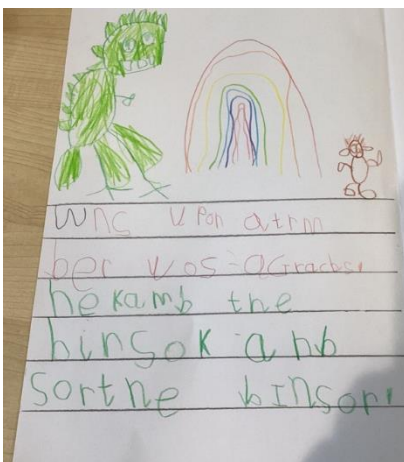 wnc upon atrm
ber wos a Gracbs.
he kamb the
binsok anb
sortne binsor